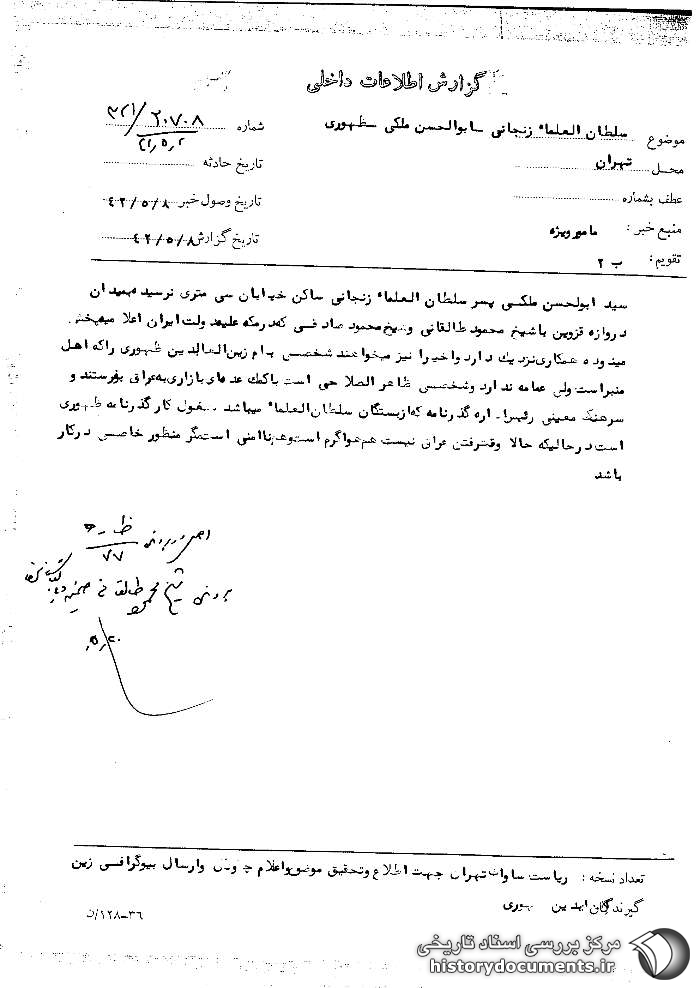 گزارش اطلاعات داخلی
موضوع سلطان العلماء زنجانی ـ ابوالحسن ملکی ـ ظهوری
شماره ۲۰۷۰۸/۳۲۱
محل تهران
تاریخ حادثه
عطف بشماره
تاریخ وصول خبر ۴۲/۵/۸
منبع خبر : مامور ویژه
تاریخ گزارش ۴۲/۵/۸
تقویم : ب ۲
سید ابولحسن ملکی پسر سلطان العلماء زنجانی ساکن خیابان سی متری نرسیده بمیدان
دروازه قزوین باشیخ محمود طالقانی وشیخ محمود صادقی که در مکه علیه دولت ایران اعلامیه پخش
مینموده همکاری نزدیک دارد واخیرا نیز میخواهند شخصی بنام زین العابدین ظهوری را که اهل
منبر است ولی عمامه ندارد وشخصی ظاهر الصلاحی است باکمک عده ای بازاری به عراق بفرستند و
سرهنگ معینی رئیس اداره گذرنامه که از بستگان سلطان العلماء میباشد مشغول کار گذرنامه ظهوری
است در حالیکه حالا وقت رفتن عراق نیست هم هوا گرم است وهم ناامنی است مگر منظور خاصی در کار
باشد
اصل در پرونده
۷۷
پرونده شیخ محمود طالقانی ضمیمه
۵/۲۰
تعداد نسخه : ریاست ساواک تهران جهت اطلاع وتحقیق موضوع واعلام چگونگی وارسال بیوگرافی زین
گیرندگان العابدین ظهوری
۱۲۸-۳۶/د
مرکز بررسی اسناد تاریخی
historydocuments.ir